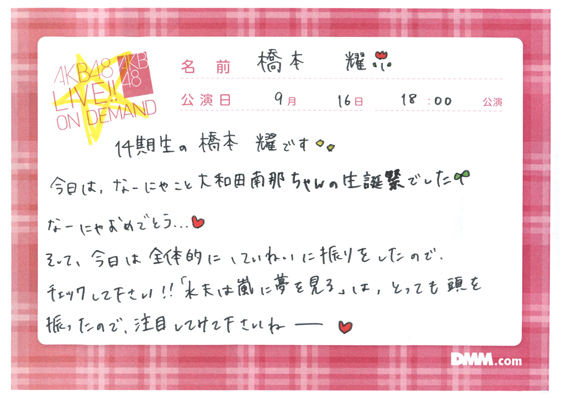 AKB48
LIVE!!
ON DEMAND
AKB
48
名前 橋本 耀
公演日 9月 16日 18:00 公演
14期生の橋本 耀です
今日は、なーにゃこと大和田南那ちゃんの生誕祭でした
なーにゃおめでとう...
そして、今日は全体的にていねいに振りをしたので、
チェックして下さい!!「水夫は嵐に夢を見る」は、とっても頭を
振ったので、注目してみて下さいねー
DMM.com